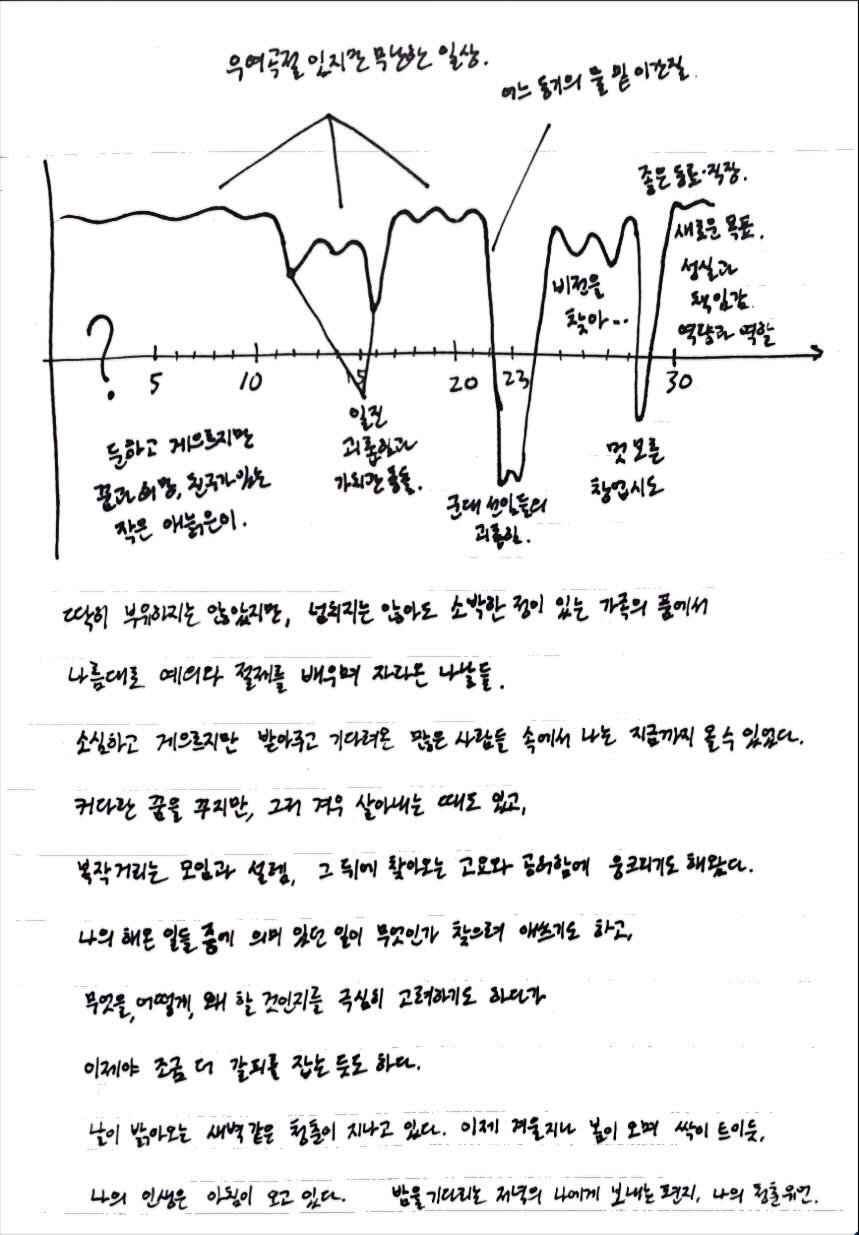 우여곡절 있지만 무난한 일상.
어느 동기의 물 밑 이간질.
좋은 동료·직장.
새로운 목표.
성실과
책임감
역량과 역할
비전을
찾아...
?
5
10
15
20
23
30
둔하고 게으르지만
꿈과 희망, 친구가 있는
작은 애늙은이.
일진
괴롭힘과
가치관 충돌.
군대 선임들의
괴롭힘.
멋 모른
창업시도
딱히 부유하지는 않았지만, 넘치지는 않아도 소박한 정이 있는 가족의 품에서
나름대로 예의와 절제를 배우며 자라온 나날들.
소심하고 게으르지만 받아주고 기다려온 많은 사람들 속에서 나는 지금까지 올 수 있었다.
커다란 꿈을 꾸지만, 그저 겨우 살아내는 때도 있고,
북작거리는 모임과 설렘, 그 뒤에 찾아오는 고요와 공허함에 웅크리기도 해왔다.
나의 해온 일들 중에 의미 있던 일이 무엇인가 찾으려 애쓰기도 하고,
무엇을, 어떻게, 왜 할 것인지를 극심히 고려하기도 하다가
이제야 조금 더 갈피를 잡는 듯도 하다.
날이 밝아오는 새벽 같은 청춘이 지나고 있다. 이제 겨울지나 봄이 오며 싹이 트이듯,
나의 인생은 아침이 오고 있다. 밤을 기다리는 저녁의 나에게 보내는 편지, 나의 청춘유언.